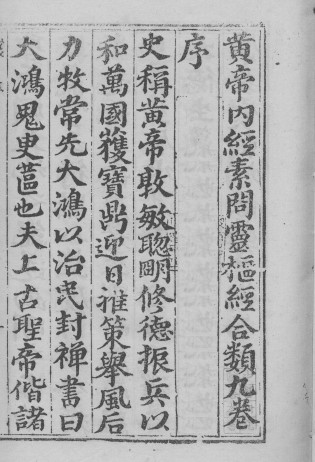 黄帝內經素問靈樞經合類九卷
序
史稱黄帝敦敏聰明修德振兵以
和萬國獲寶鼎迎日推策舉風后
力牧常先大鴻以治民封禪書曰
大鴻鬼臾區也夫上古聖帝偕諸